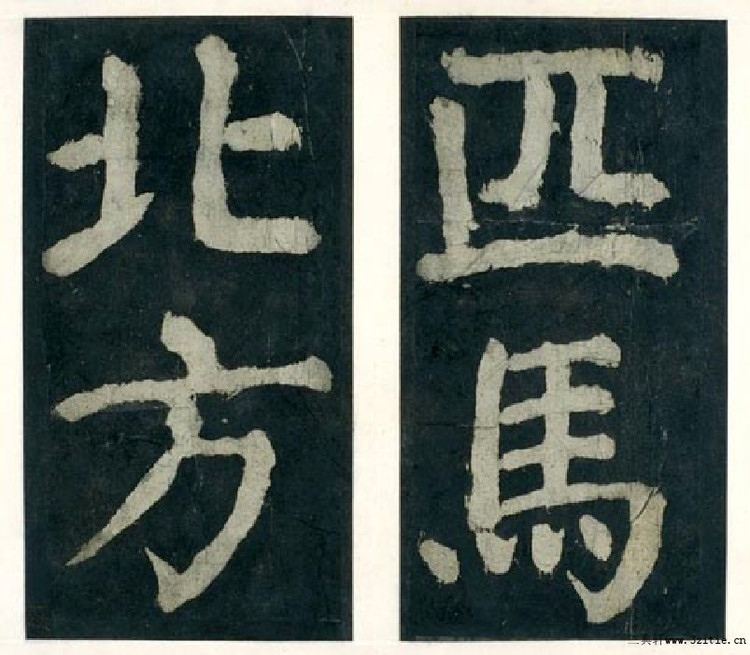 匹馬
北方
www.321tie.cn